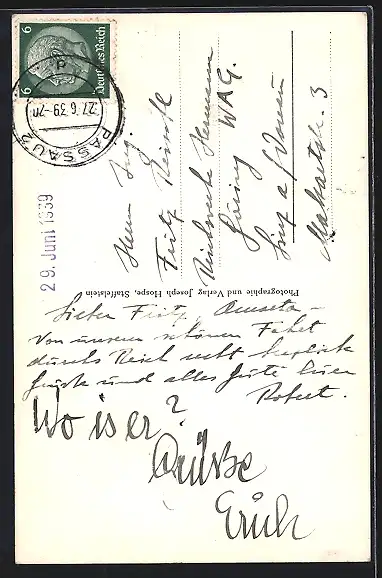 6 Deutsches Reich 6
PASSAU 2
27.6.39.-20
d
29. Juni 1939
Herrn Ing.
Fritz
Reichswerke Hermann
Göring WAG.
Linz a/Donau
3
Photographie und Verlag Joseph Hospe, Staffelstein
Lieber Fritz,
Von unserer schönen Fahrt
durchs Reich recht herzliche
Grüße und alles Gute Euer
Robert.
Wo is er?
Grüsse
Erich